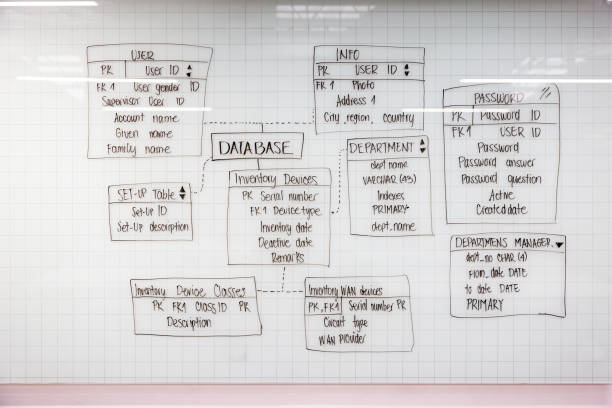 USER
PK User ID
FK1 User gender ID
Supervisor User ID
Account name
Given name
Family name
INFO
PK USER ID
FK1 Photo
Address 1
City, region, country
PASSWORD
PK Password ID
FK1 USER ID
Password
Password answer
Password question
Active
Created date
DATABASE
DEPARTMENT
dept name
VARCHAR (45)
Indexes
PRIMARY
dept.name
SET-UP Table
Set-Up ID
Set-Up description
Inventory Devices
PK Serial number
FK1 Device type
Inventory date
Deactive date
Remarks
DEPARTMENS MANAGER
dept-no CHAR (4)
From_date DATE
to date DATE
PRIMARY
Inventory Device Classes
PK FK1 Class ID PK
Description
Inventory WAN devices
PK, FK1 Serial number PK
Circuit type
WAN Provider